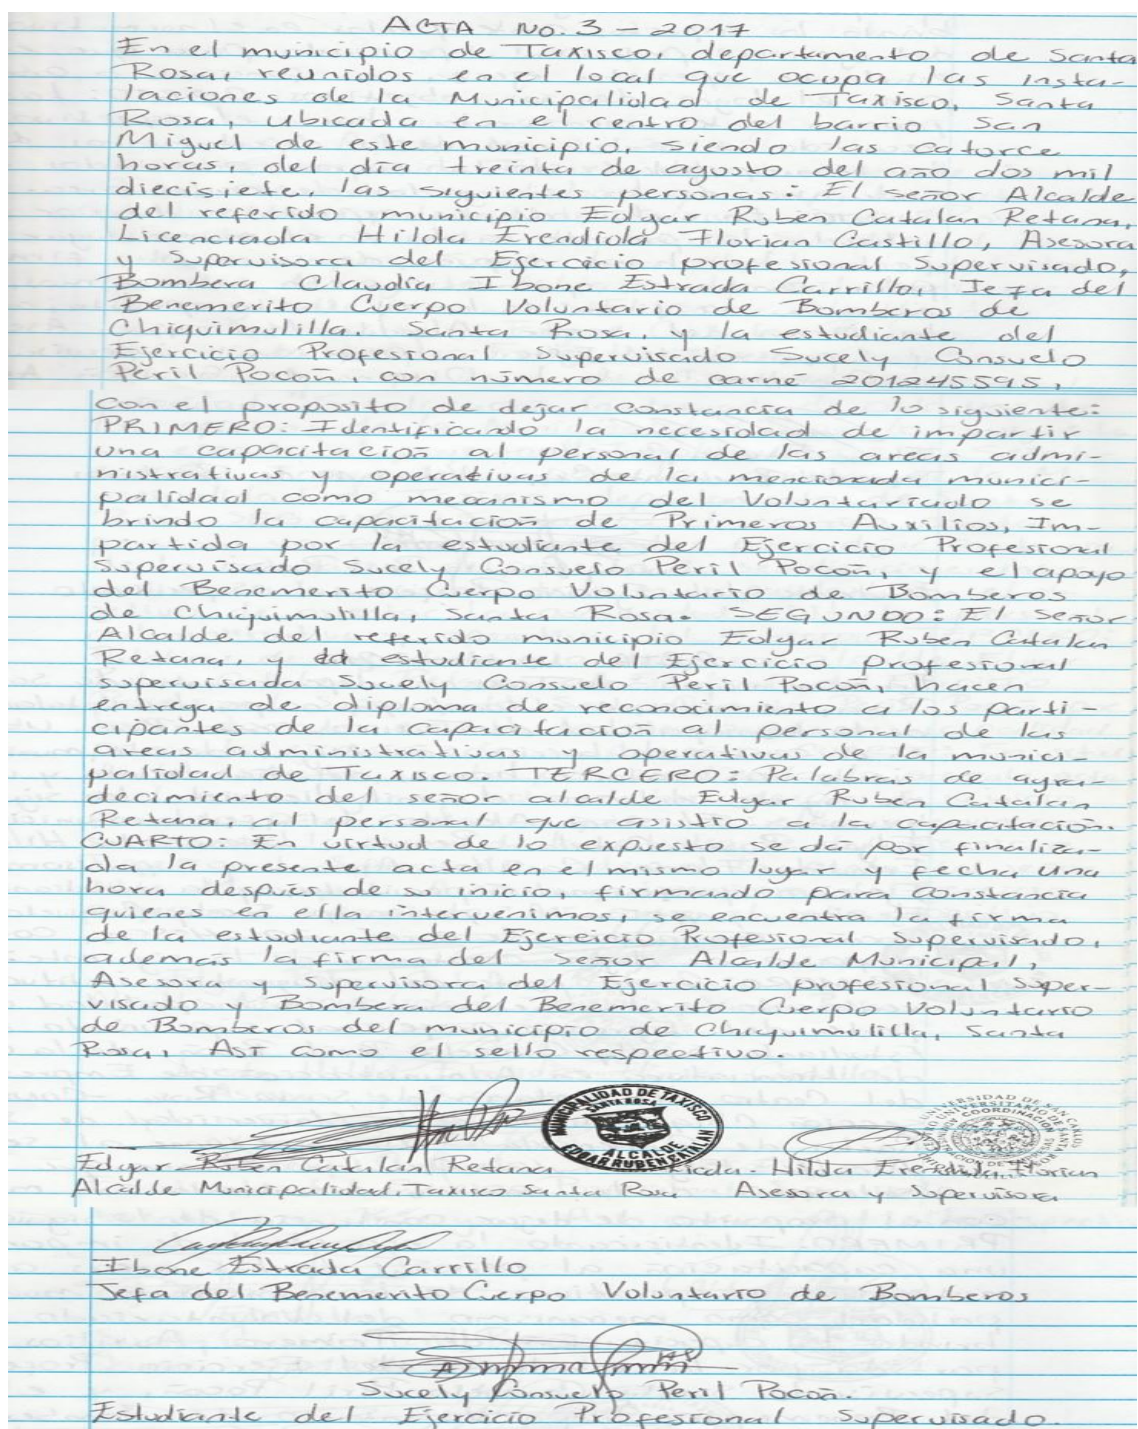 ACTA No. 3 - 2017
En el municipio de Taxisco, departamento de Santa
Rosa, reunidos en el local que ocupa las insta-
laciones de la Municipalidad de Taxisco, Santa
Rosa, ubicada en el centro del barrio San
Miguel de este municipio, siendo las catorce
horas, del día treinta de agosto del año dos mil
diecisiete, las siguientes personas: El señor Alcalde
del referido municipio Edgar Ruben Catalan Retana,
Licenciada Hilda Erendida Florian Castillo, Asesora
y Supervisora del Ejercicio profesional Supervisado,
Bombera Claudia Ibone Estrada Carrillo, Jefa del
Benemerito Cuerpo Voluntario de Bomberos de
Chiquimulilla, Santa Rosa, y la estudiante del
Ejercicio Profesional Supervisado Sucely Consuelo
Peril Pocón, con número de carné 201245595,
con el proposito de dejar constancia de lo siguiente:
PRIMERO: Identificando la necesidad de impartir
una capacitación al personal de las areas admi-
nistrativas y operativas de la mencionada munici-
palidad como mecanismo del Voluntariado se
brindo la capacitación de Primeros Auxilios, Im-
partida por la estudiante del Ejercicio Profesional
Supervisado Sucely Consuelo Peril Pocón, y el apoyo
del Benemerito Cuerpo Voluntario de Bomberos
de Chiquimulilla, Santa Rosa. SEGUNDO: El señor
Alcalde del referido municipio Edgar Ruben Catalan
Retana, y estudiante del Ejercicio profesional
supervisada Sucely Consuelo Peril Pocón, hacen
entrega de diploma de reconocimiento a los parti-
cipantes de la capacitación al personal de las
areas administrativas y operativas de la munici-
palidad de Taxisco. TERCERO: Palabras de agra-
decimiento del señor alcalde Edgar Ruben Catalan
Retana, al personal que asistio a la capacitación.
CUARTO: En virtud de lo expuesto se da por finaliza-
da la presente acta en el mismo lugar y fecha una
hora después de su inicio, firmando para constancia
quienes en ella intervenimos, se encuentra la firma
de la estudiante del Ejercicio Profesional Supervisado,
además la firma del Señor Alcalde Municipal,
Asesora y Supervisora del Ejercicio profesional Super-
visado y Bombera del Benemerito Cuerpo Voluntario
de Bomberos del municipio de Chiquimulilla, Santa
Rosa, Así como el sello respectivo.
MUNICIPALIDAD DE TAXISCO
SANTA ROSA
ALCALDE
EDGAR RUBEN CATALAN
UNIVERSIDAD DE SAN CARLOS
COORDINACION
Edgar Ruben Catalan Retana Licda. Hilda Erendida Florian
Alcalde Municipalidad, Taxisco Santa Rosa Asesora y Supervisora
Ibone Estrada Carrillo
Jefa del Benemerito Cuerpo Voluntario de Bomberos
Sucely Consuelo Peril Pocón.
Estudiante del Ejercicio Profesional Supervisado.